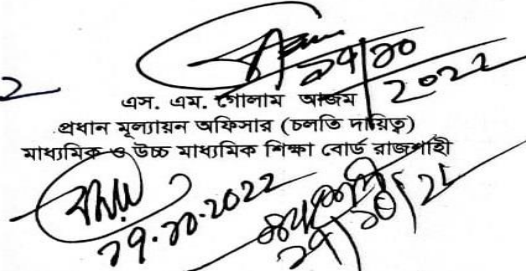 ২৭/১০
2022
এস. এম. গোলাম আজম
প্রধান মূল্যায়ন অফিসার (চলতি দায়িত্ব)
মাধ্যমিক ও উচ্চ মাধ্যমিক শিক্ষা বোর্ড রাজশাহী
২৭.১০.2022
২৭/১০/২২